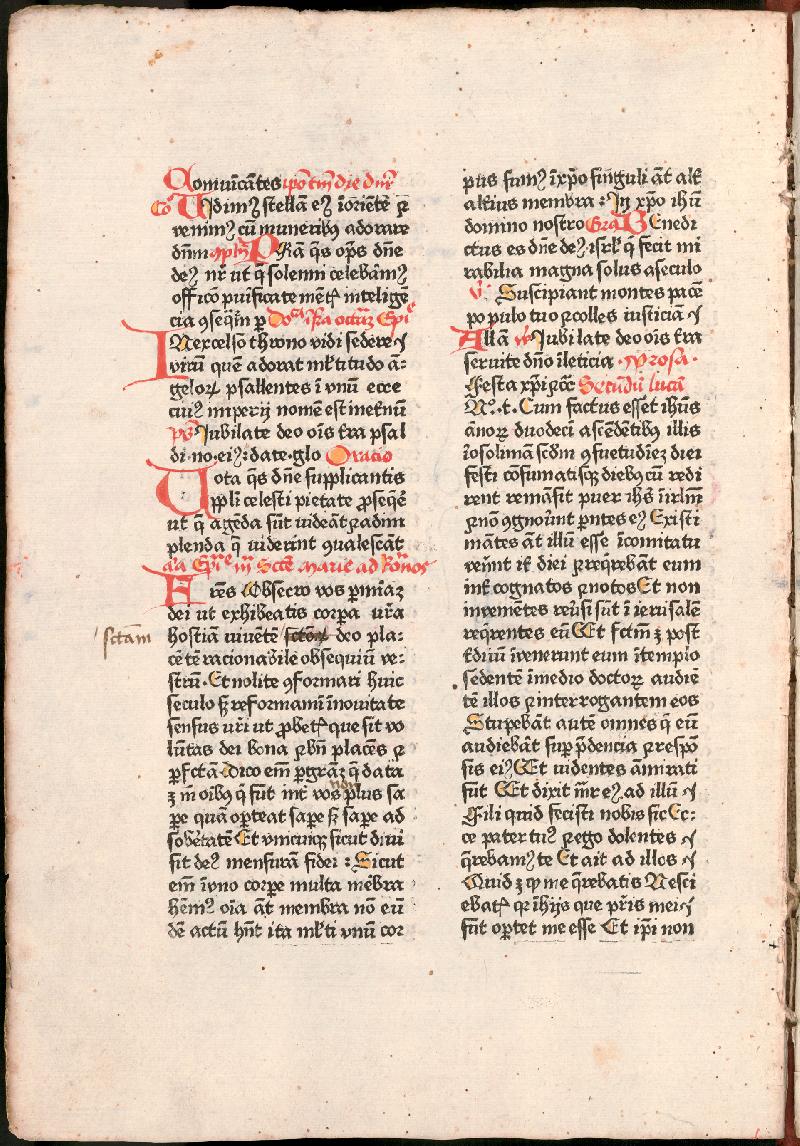 Comunicantes ipo tm die dicit
Co Uidim⁹ stellā ei⁹ ī oriēte ꝛ
venim⁹ cū munerib⁹ adorare
dn̄m ꝯplꝫ Prā q̄s op̄s dn̄e
de⁹ nr̄ ut q̄ solenni celebam⁹
officō puificate mēt⁊ intelige
cia ꝯseqm̄ p Doca īfra octauā Epīe
Inexcelso throno vidi sedere
virū quē adorat ml̄titudo ā-
geloꝝ psallentes ī vnū ecce
cui⁹ imperij nomē est inet̄nū
ps̄ Jubilate deo oīs t̄ra psal
di.no.ei⁹: date.glo Oracio
Uota q̄s dn̄e supplicantis
ppl̄i celesti pietate ꝓseqē
ut q̄ agēda sūt uideāt ꝛ adim
plenda q̄ uiderint ꝯualescāt
Sctē marie ad Romos
Fr̄es Obsecro vos p mīaꝫ
dei ut exhibeatis corpa ur̄a
hostiā uiuētē deo pla-
sctām
cētē racionabile obsequiū ve-
strū. Et nolite ꝯformari huic
seculo sꝫ reformaminī ī nouitate
sensus ur̄i ut ꝓbet⁊ que sit vo
lūtas dei bona ꝛ bn̄ placēs ꝛ
pfctā Dico em̄ p grāꝫ q̄ data
ꝫ m̄ oīb⁹ q̄ sūt int̄ vos non plus sa
pe quā oꝑteat sape sꝫ sape ad
sobrietatē Et vnicuiqꝫ sicut diui
sit de⁹ mensurā fidei : Sicut
em̄ ī vno corpe multa mēbra
hēm⁹ oīa āt membra nō eū
dē actū hn̄t ita ml̄ti vnū cor
pus sum⁹ ī xp̄o singuli āt alt̄
alt̄ius membra : In xp̄o ihū
domino nostro Gra Benedi
ctus es dn̄e de⁹ isrl̄ q̄ fecit mi
rabilia magna solus aseculo
v̄. Suscipiant montes pacē
populo tuo ꝛ colles iusticiā
Allā v̄ Jubilate deo oīs t̄ra
seruite dn̄o ī leticia . prosa.
Festa xp̄i Secūdū lucā
N°.t. Cum factus esset ihūs
ānoꝝ duodecī ascēdētib⁹ illis
īosolimā scdm̄ ꝯsuetudiēꝫ diei
festi cōsumatisqꝫ dieb⁹ cū redi
rent remāsit puer ihs̄ ī irl̄m
ꝛ nō ꝯgnoūnt pntes ei⁹ Existi
mātes āt illū esse ī comitatu
vēnt it̄ diei ꝛ reqrebāt eum
int̄ cognatos ꝛ notos Et non
inuenietes reūsi sūt ī ierusalē
reqrentes eū Et fctm̄ ꝫ post
tdiuū īvenerunt eum ī templo
sedentē ī medio doctoꝝ audiē
tē illos ꝛ interrogantem eos
Stupebāt autē omnes q̄ eū
audiebāt sup pdencia ꝛ respō
sis ei⁹ Et uidentes āmirati
sūt Et dixit mr̄ ei⁹ ad illū
Fili quid fecisti nobis sic Ec-
ce pater tu⁹ ꝛ ego dolentes
q̄rebam⁹ te Et ait ad illos
Quid ꝫ ꝙ me q̄rebatis Nesci
ebat⁊ qꝛ ī hijs que pr̄is mei
sūt oꝑtet me esse Et ip̄i non